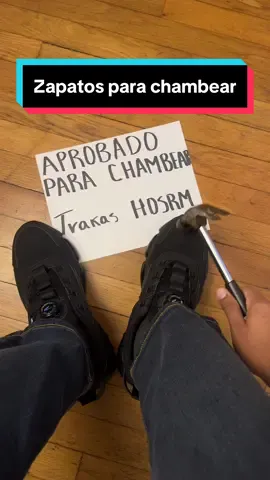 Zapatos para chambear
APROBADO
PARA CHAMBEAR
Trakas HOSRM